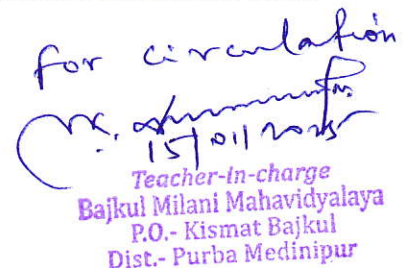 for circulation
15/01/2025
Teacher-in-charge
Bajkul Milani Mahavidyalaya
P.O.- Kismat Bajkul
Dist.- Purba Medinipur